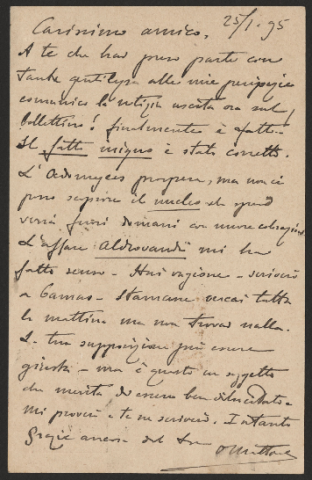 25/1. 95
Carissimo amico,
A te che hai preso parte con
tanta gentilezza alle mie peripezie
comunico la notizia uscita ora sul
bollettino! finalmente è fatta
Il fatto iniquo è stato corretto.
L'Actinomyces prospera, ma non ci
posso scoprire il nucleo che spero
verrà fuori domani con nuove colorazioni
L'affare Aldrovandi mi ha
fatto senso - Hai ragione - scriverò
a Camus - Stamane cercai tutta
la mattina ma non trovai nulla.
La tua supposizione può essere
giusta - ma è questo un soggetto
che merita di essere ben dilucidato -
mi proverò e te ne scriverò. Intanto
Grazie ancora dal tuo
OMattirolo